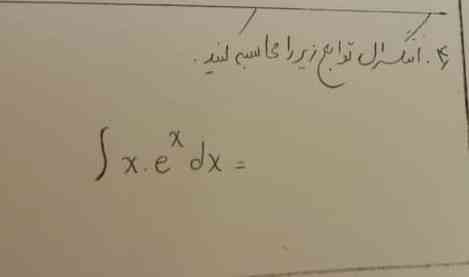 ۴. انتگرال توابع زیر را محاسبه کنید.
∫ x.e^x dx =